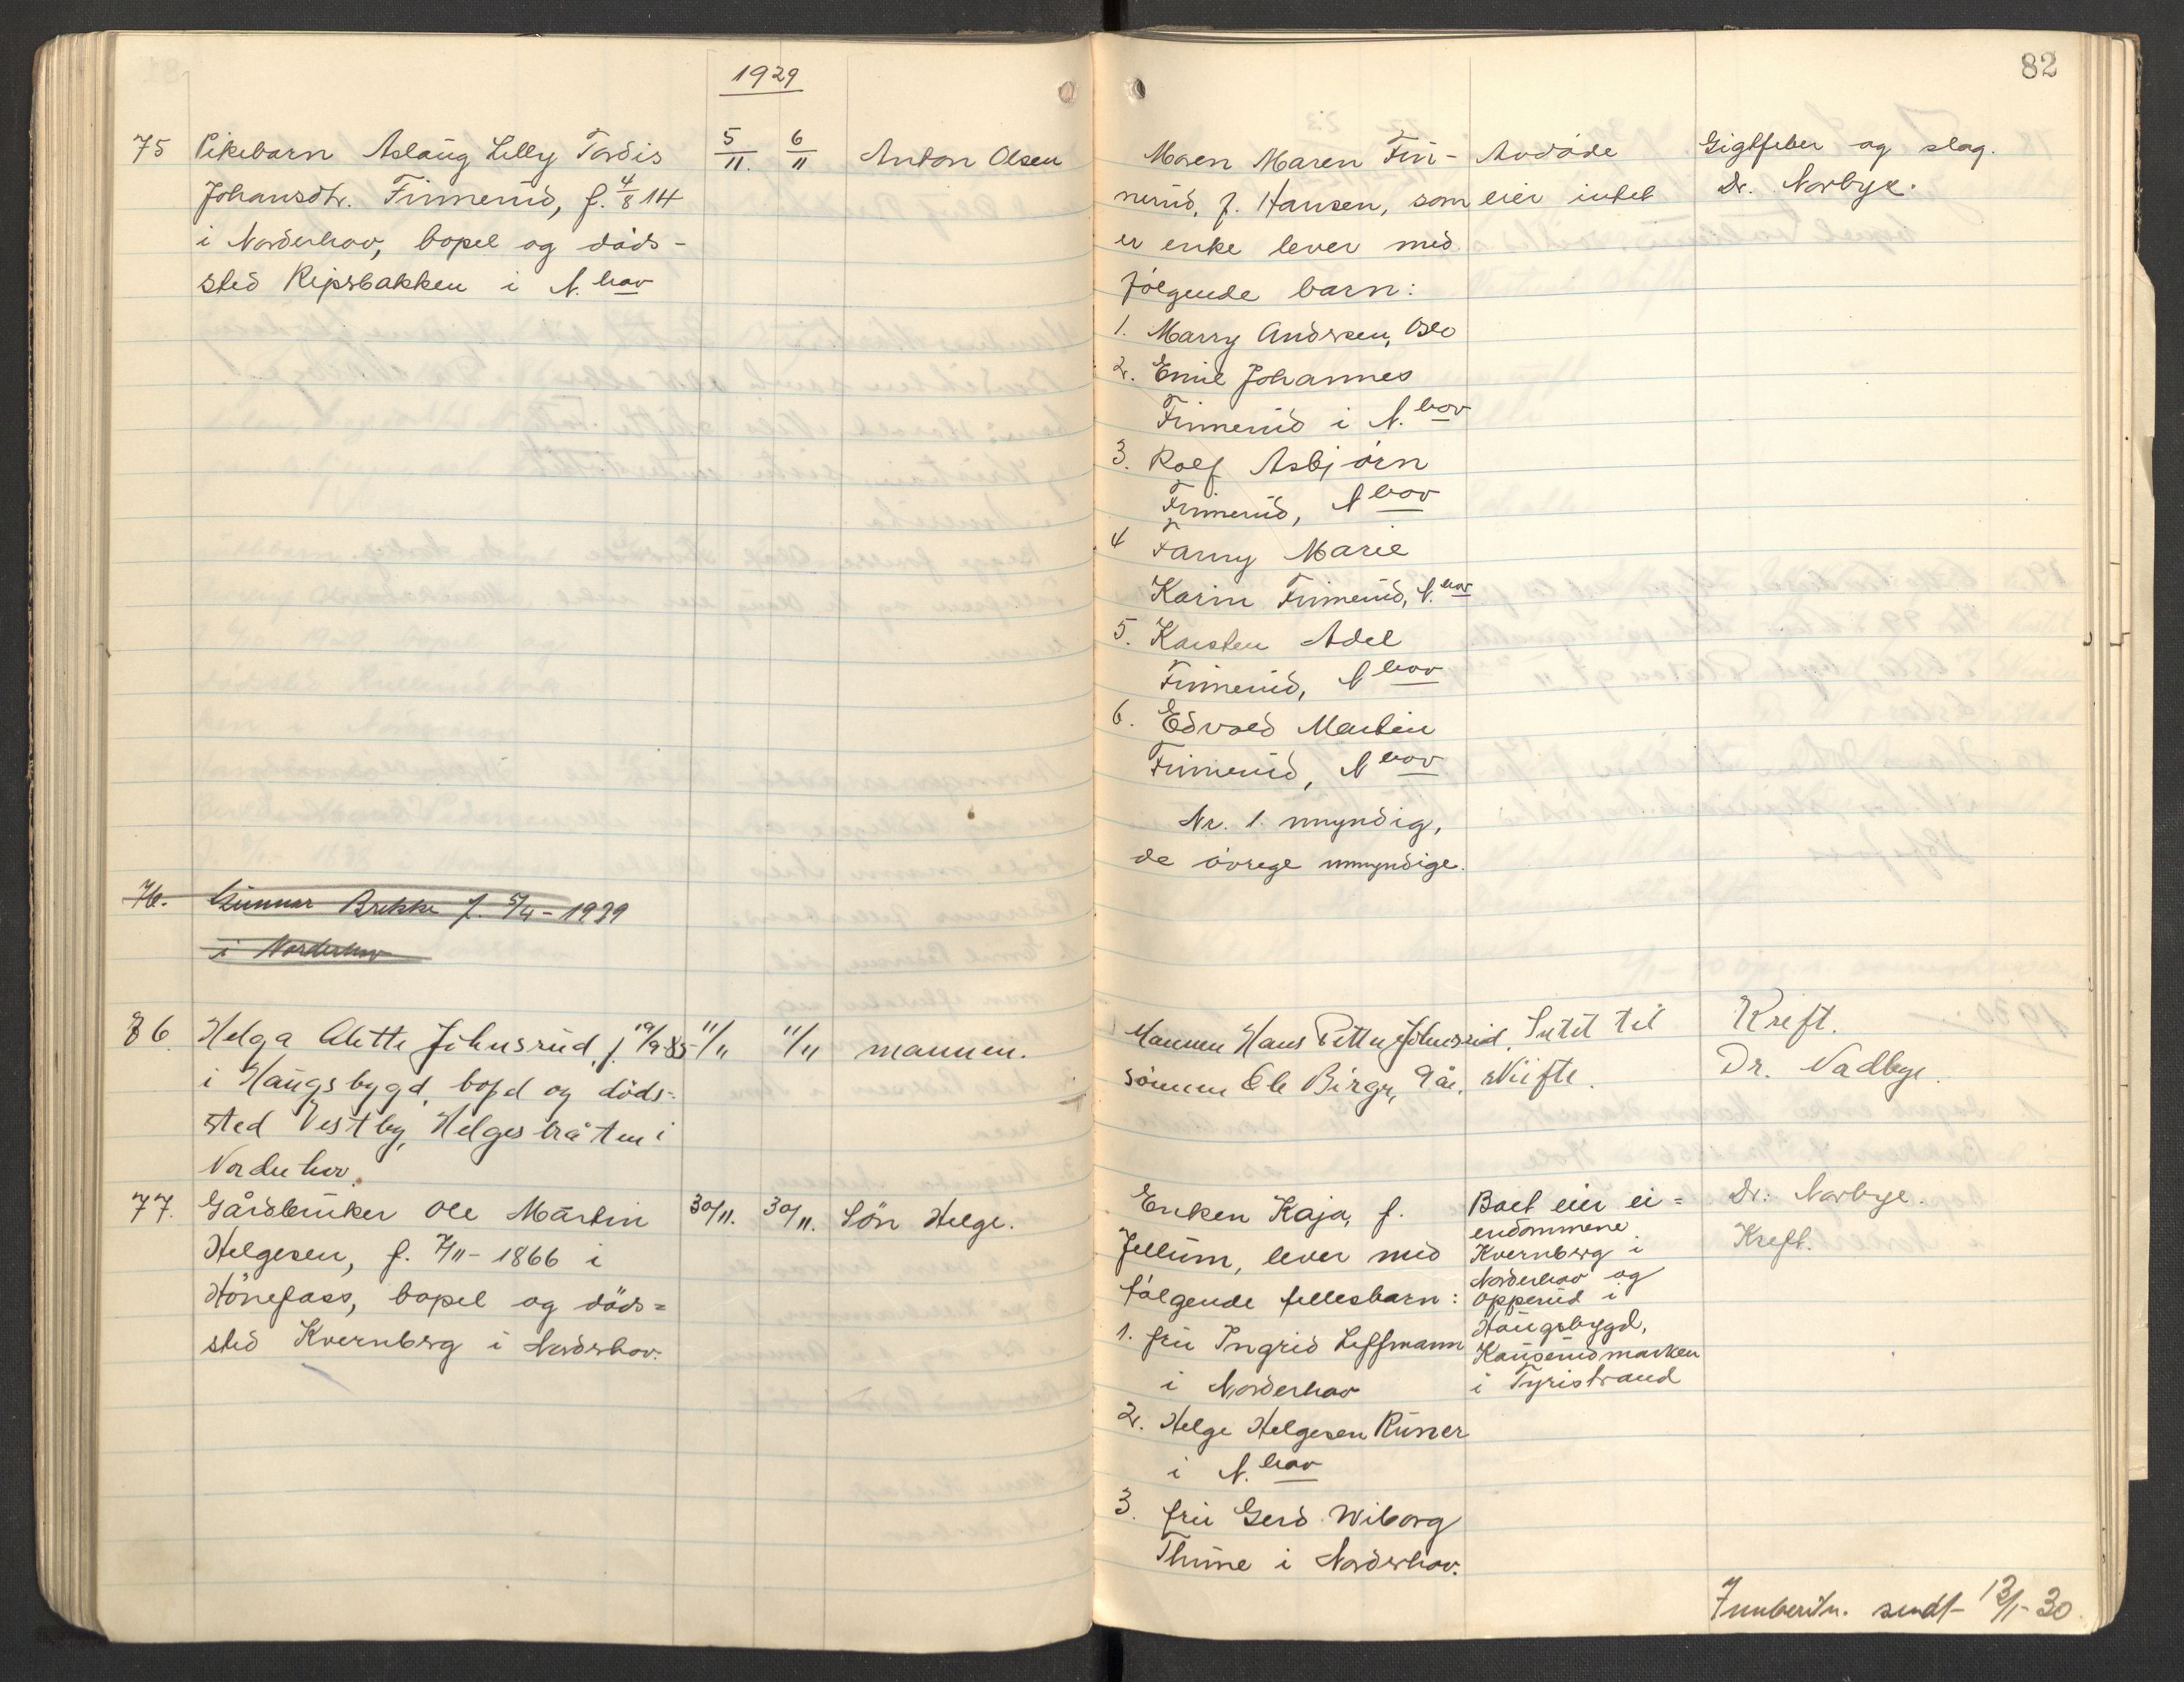 1929
82
75 Pikebarn Aslaug Lilly Tordis 5/11. 6/11 Anton Olsen
Johansdtr. Finnerud, f. 4/8 14
i Norderhov, bopel og døds-
sted Ripsbakken i N.hov
Moren Maren Fin-
nerud, f. Hansen, som
er enke lever med
følgende barn:
1. Marry Andersen, Oslo
2. Emil Johannes
Finnerud i N.hov
3. Rolf Asbjørn
Finnerud, N hov
4 Fanny Marie
Karin Finnerud, N.hov
5. Karsten Adel
Finnerud, N hov
6. Edvard Martin
Finnerud, N hov
Nr. 1. myndig,
de øvrige umyndige.
Avdøde
eier intet
Gigtfeber og slag.
Dr. Norbye.
76. Gunnar Brekke f. 5/4-1929
i Norderhov
76. Helga Alette Johnsrud, f. 19/9-85 11/11 11/11 mannen.
i Haugsbygd, bopel og døds-
sted Vestby, Helgesbråten i
Norderhov.
Mannen Hans Petter Johnsrud,
sønnen Ole Birger, 9 år.
Intet til
skifte.
Kreft.
Dr. Nadbye.
77. Gårdbruker Ole Martin 30/11. 30/11. Sön Helge.
Helgesen, f. 7/11-1866 i
Hönefoss, bopel og döds=
sted Kvernberg i Norderhov.
Enken Kaja, f.
Jellum, lever med
følgende fellesbarn:
1. fru Ingrid Leffmann
i Norderhov
2. Helge Helgesen
i N.hov
3. fru Gerd Wiborg
Thune i Norderhov.
Boet eier ei=
endommene
Kvernberg i
Norderhov og
Opperud i
Haugsbygd,
i Tyristrand
Dr. Norbye.
Kreft.
Innberetn. sendt 13/1-30.